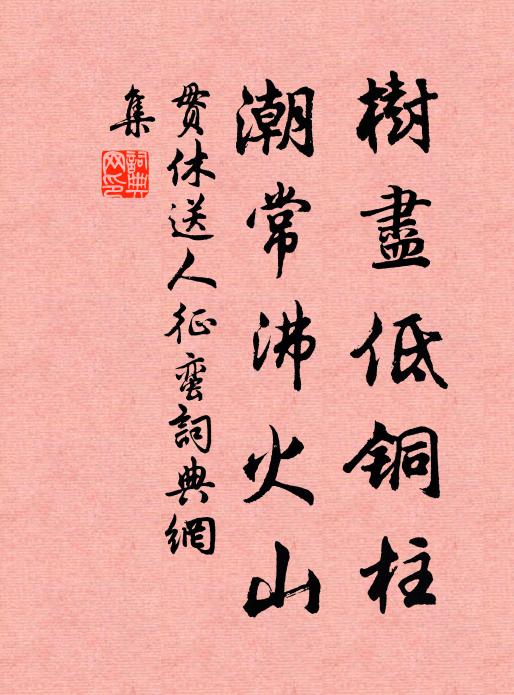 樹盡低銅柱
潮常沸火山
貫休送人征蠻詞典網
集
詞典
网印